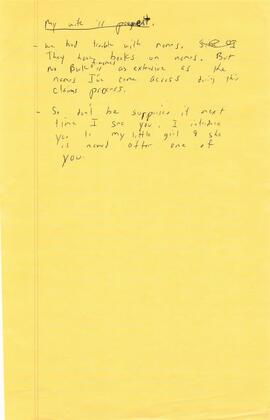 My wife is pregent.
- We had trouble with names.
They having books on names. But
no Book of names is as extensive as the
names I've come across doing this
claims process.
- So don't be supprised if next
time I see you, I introduce
you to my little girl & she
is named after one of
you.